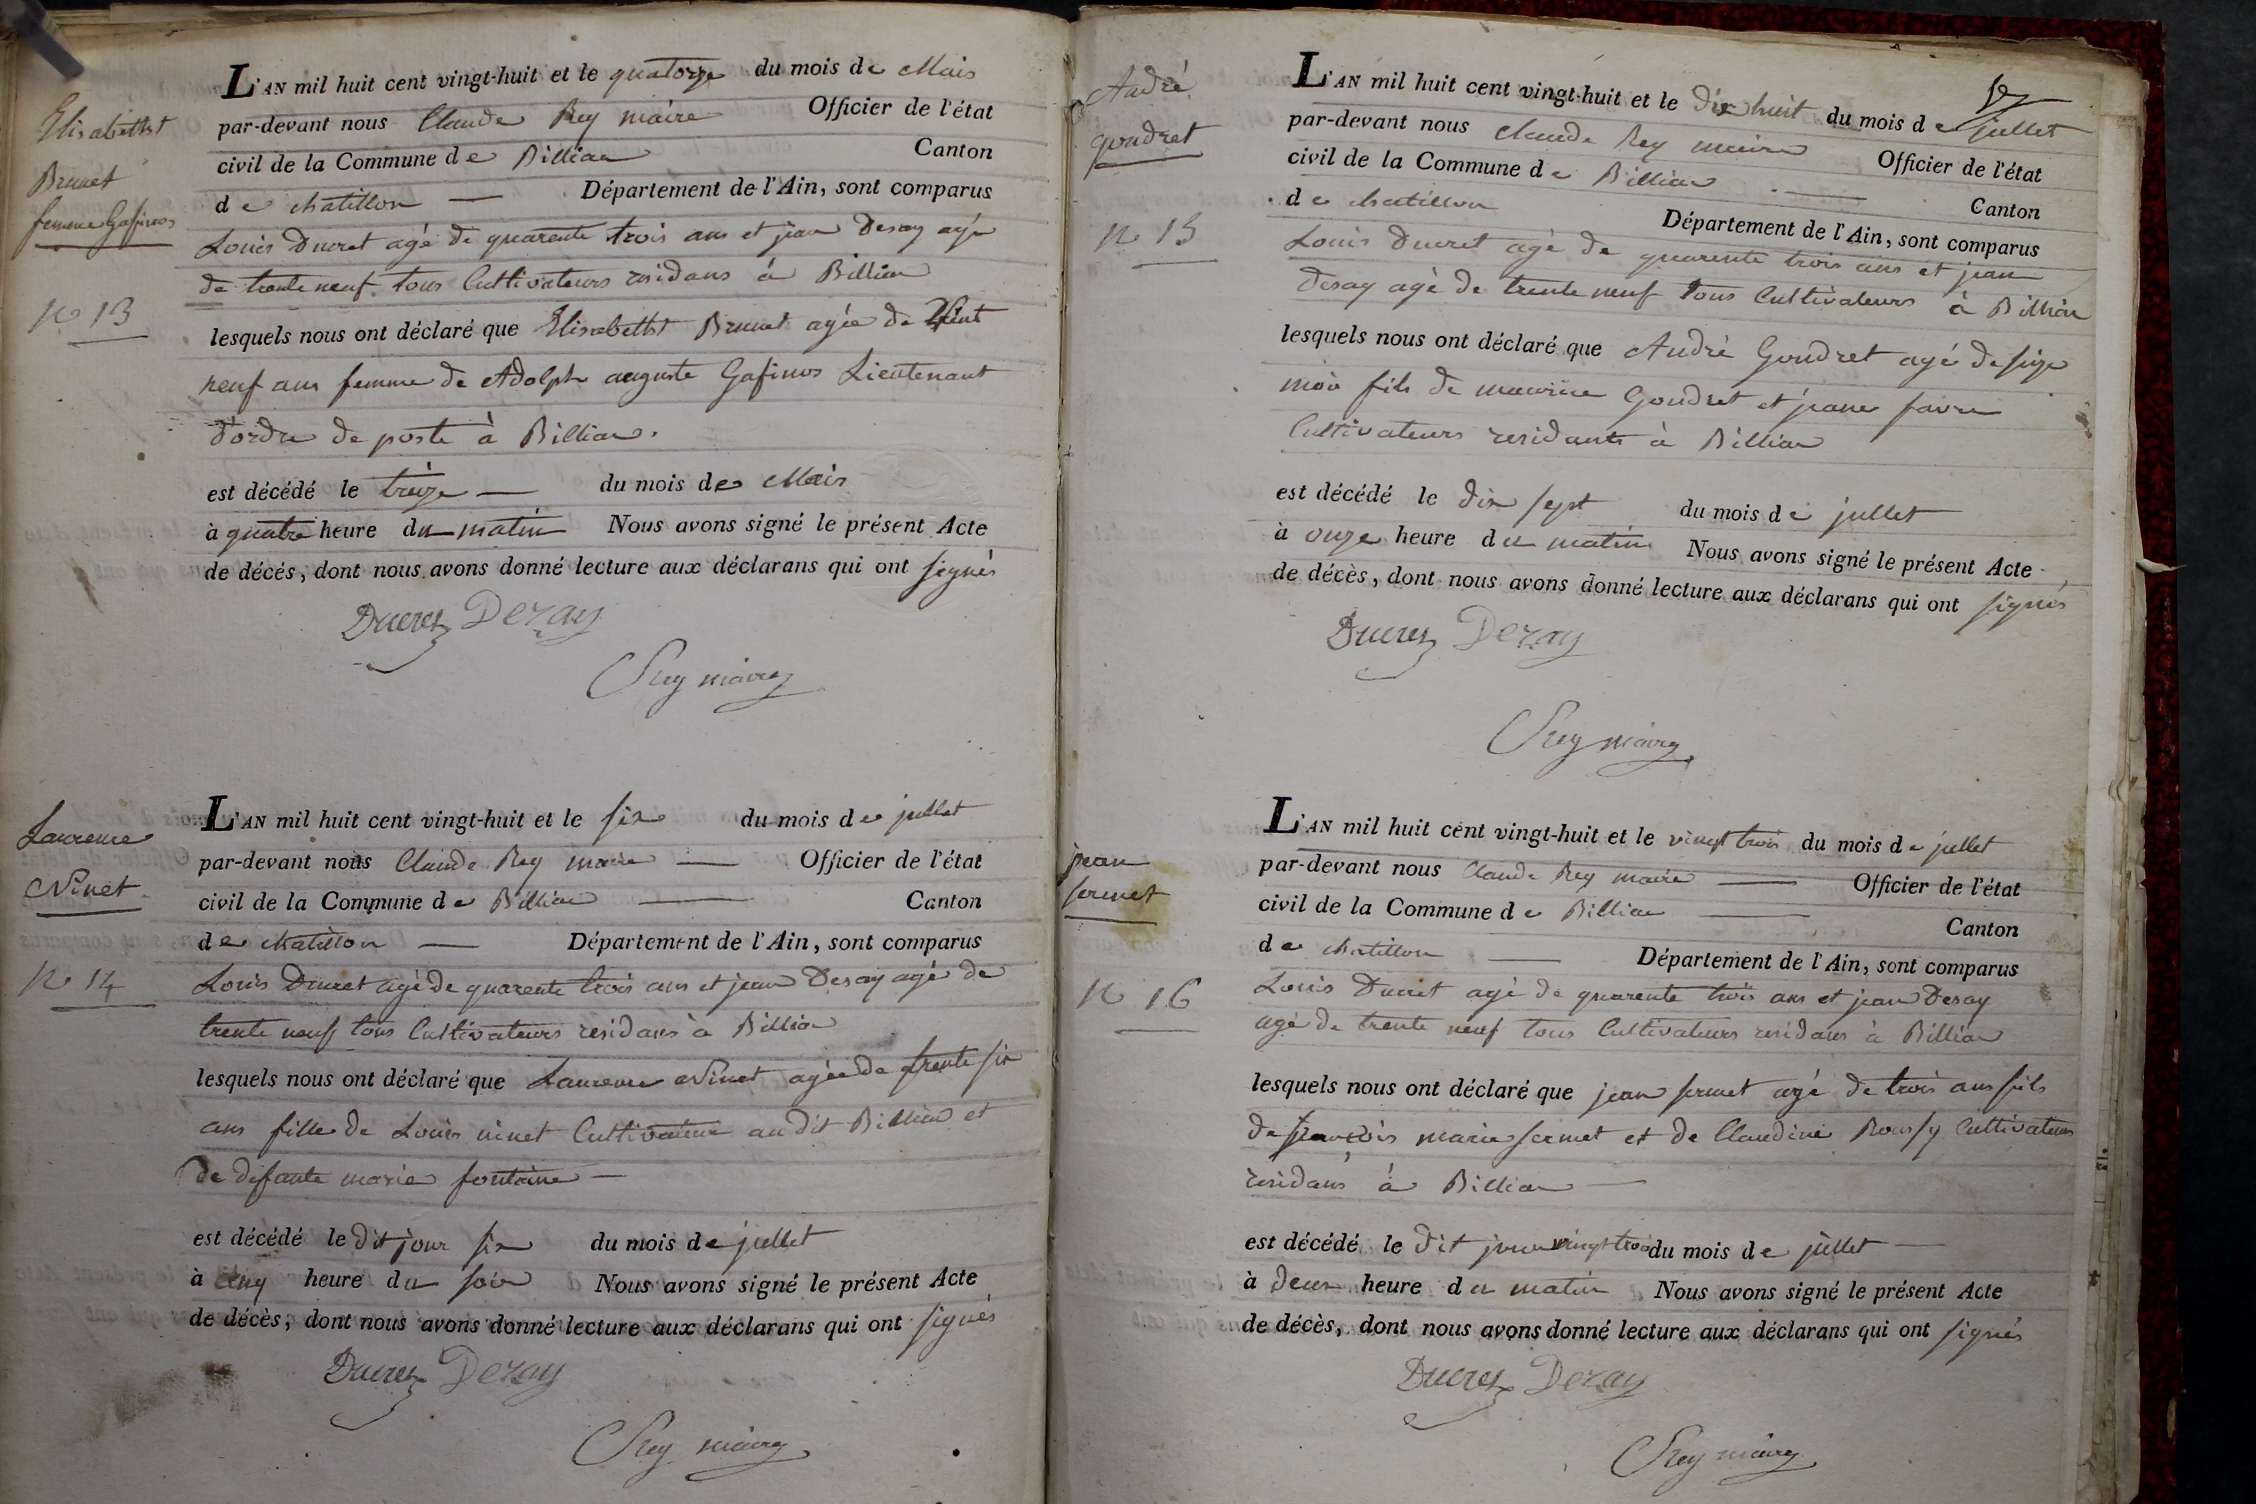 Elisabethst
Brunet
femme Gafinos
N 13
L'AN mil huit cent vingt-huit et le quatorze du mois de Mais
par-devant nous Claude Rey maire Officier de l'état
civil de la Commune de Billiac Canton
de chatillon Département de l'Ain, sont comparus
Louis Ducret agé de quarente trois ans et jean Desay agé
de trente neuf tous Cultivateurs residans à Billiac
lesquels nous ont déclaré que Elisabethst Brunet agée de Vint
neuf ans femme de Adolph auguste Gafinos Lieutenant
d'ordre de poste à Billiac.
est décédé le treize du mois de Mais
à quatre heure du matin Nous avons signé le présent Acte
de décés, dont nous avons donné lecture aux déclarans qui ont signés
Ducret Dezay
Rey maire
Laurence
Ninet
N 14
L'AN mil huit cent vingt-huit et le six du mois de jullet
par-devant nous Claude Rey maire Officier de l'état
civil de la Commune de Billiac Canton
de chatillon Département de l'Ain, sont comparus
Louis Ducret agé de quarente trois ans et jean Desay agé de
trente neuf tous Cultivateurs residans à Billiac
lesquels nous ont déclaré que Laurence Ninet agée de trente six
ans fille de Louis ninet Cultivateur au dit Billiac et
de defante marie fontaine
est décédé le dit jour six du mois de jullet
à cinq heure du soir Nous avons signé le présent Acte
de décès, dont nous avons donné lecture aux déclarans qui ont signés
Ducret Dezay
Rey maire
André
goudret
N 15
L'AN mil huit cent vingt-huit et le dix huit du mois de jullet
par-devant nous Claude Rey maire Officier de l'état
civil de la Commune de Billiac Canton
de chatillon Département de l'Ain, sont comparus
Louis Ducret agé de quarente trois ans et jean
Desay agé de trente neuf tous Cultivateurs à Billiac
lesquels nous ont déclaré que André Goudret agé de size
mois fils de maurice Goudret et jeane favre
Cultivateurs residants à Billiac
est décédé le dix sept du mois de jullet
à onze heure du matin Nous avons signé le présent Acte
de décès, dont nous avons donné lecture aux déclarans qui ont signés
Ducret Dezay
Rey maire
jean
sermet
N 16
L'AN mil huit cent vingt-huit et le vingt trois du mois de jullet
par-devant nous Claude Rey maire Officier de l'état
civil de la Commune de Billiac Canton
de chatillon Département de l'Ain, sont comparus
Louis Ducret agé de quarente trois ans et jean Desay
agé de trente neuf tous Cultivateurs residans à Billiac
lesquels nous ont déclaré que jean sermet agé de trois ans fils
de françois marie sermet et de Claudine Roussy Cultivateurs
residans à Billiac
est décédé le dit jour vingt trois du mois de jullet
à deux heure du matin Nous avons signé le présent Acte
de décès, dont nous avons donné lecture aux déclarans qui ont signés
Ducret Dezay
Rey maire